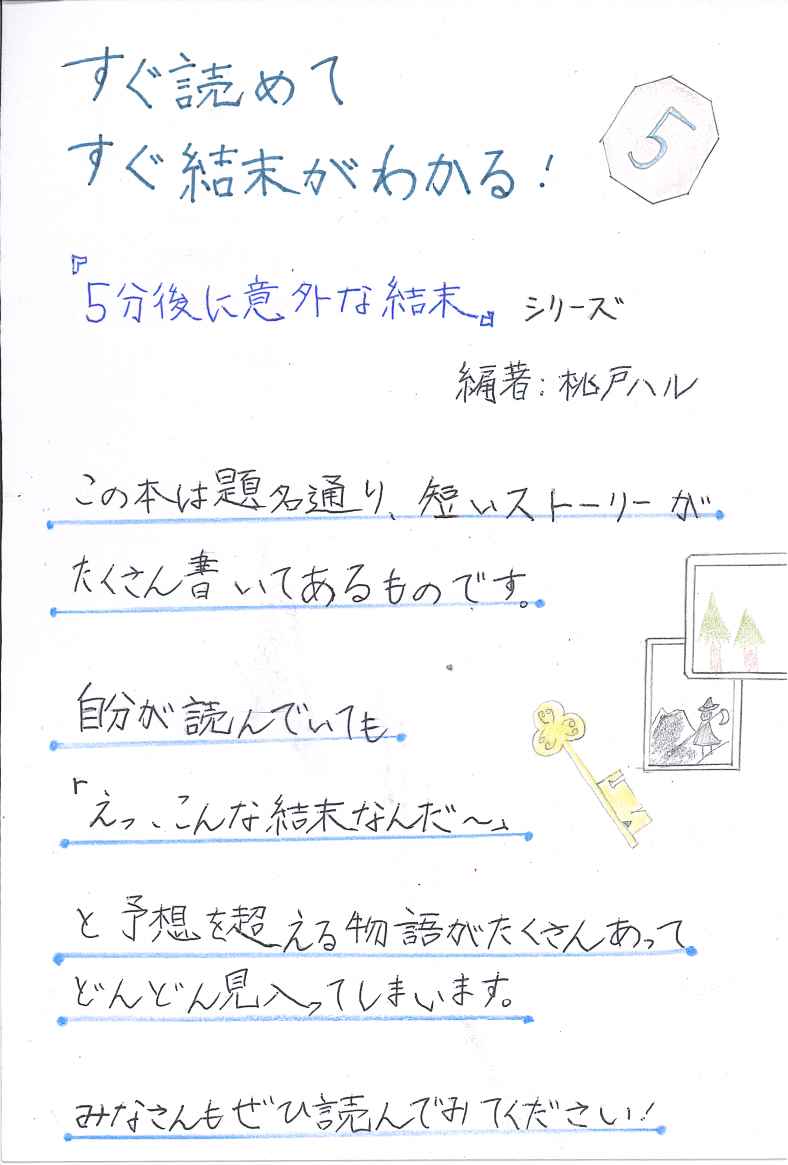 すぐ読めて
すぐ結末がわかる!
5
『5分後に意外な結末』シリーズ
編著:桃戸ハル
この本は題名通り、短いストーリーが
たくさん書いてあるものです。
自分が読んでいても
「えっ、こんな結末なんだ〜」
と予想を超える物語がたくさんあって
どんどん見入ってしまいます。
みなさんもぜひ読んでみてください!